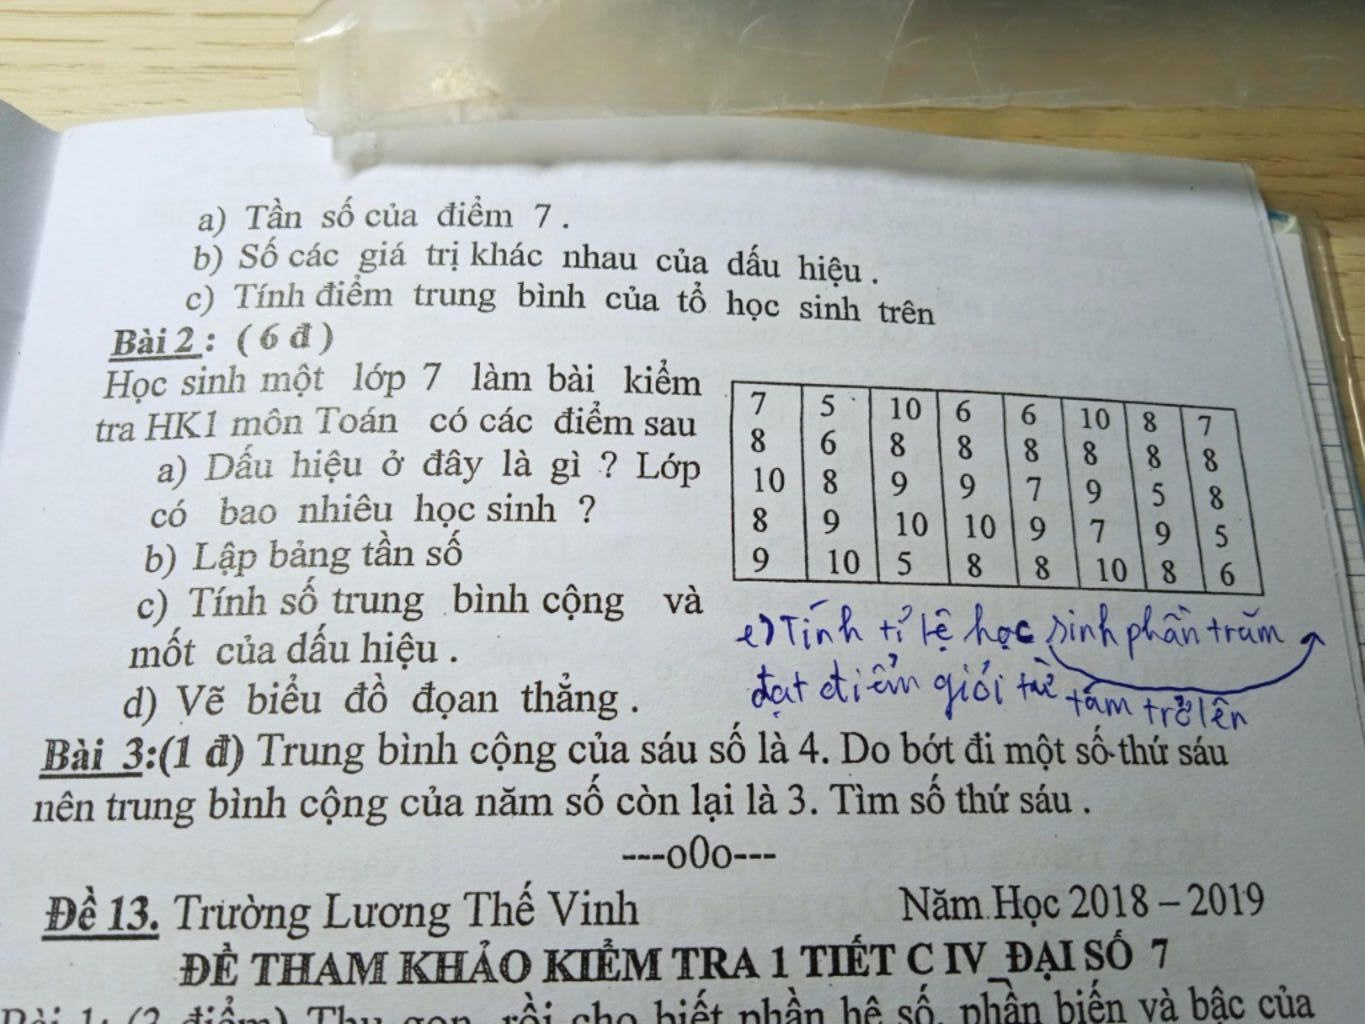 a) Tần số của điểm 7 .
b) Số các giá trị khác nhau của dấu hiệu .
c) Tính điểm trung bình của tổ học sinh trên
Bài 2 : ( 6 đ )
Học sinh một lớp 7 làm bài kiểm
tra HK1 môn Toán có các điểm sau
a) Dấu hiệu ở đây là gì ? Lớp
có bao nhiêu học sinh ?
b) Lập bảng tần số
c) Tính số trung bình cộng và
mốt của dấu hiệu .
d) Vẽ biểu đồ đọan thẳng .
7 5 10 6 6 10 8 7
8 6 8 8 8 8 8 8
10 8 9 9 7 9 5 8
8 9 10 10 9 7 9 5
9 10 5 8 8 10 8 6
e) Tính tỉ lệ học sinh phần trăm
đạt điểm giỏi từ tám trở lên
Bài 3:(1 đ) Trung bình cộng của sáu số là 4. Do bớt đi một số thứ sáu
nên trung bình cộng của năm số còn lại là 3. Tìm số thứ sáu .
---o0o---
Đề 13. Trường Lương Thế Vinh Năm Học 2018 – 2019
ĐỀ THAM KHẢO KIỂM TRA 1 TIẾT C IV_ĐẠI SỐ 7
Bài 1: (2 điểm) Thu gọn rồi cho biết phần hệ số, phần biến và bậc của